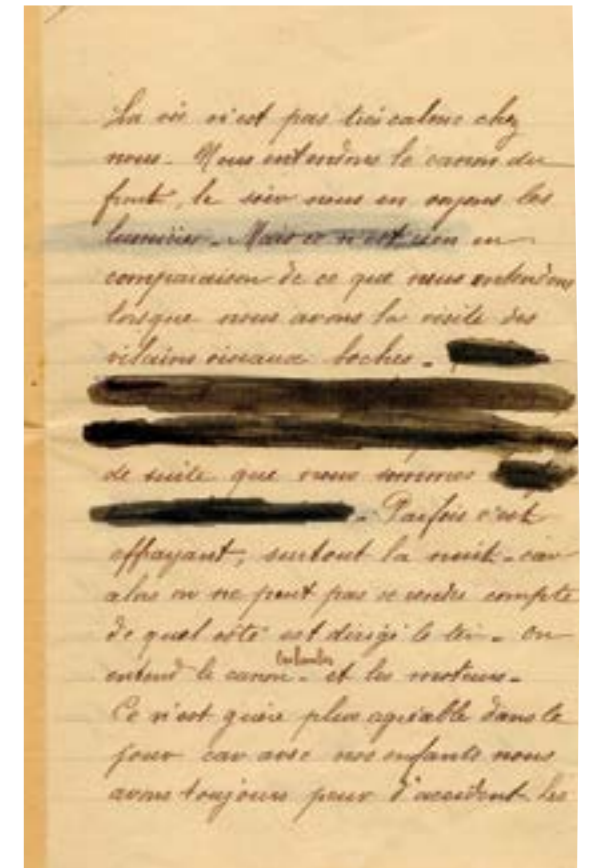 La vie n'est pas très calme chez
nous. Nous entendons le canon du
front, le soir nous en voyons les
lumières. Mais ce n'est rien en
comparaison de ce que nous entendons
lorsque nous avons la visite des
vilains oiseaux boches.
de suite que nous sommes
Parfois c'est
effrayant, surtout la nuit - car
alors on ne peut pas se rendre compte
de quel côté est dirigé le tir. On
entend le canon - et les moteurs.
Ce n'est guère plus agréable dans le
jour car avec nos enfants nous
avons toujours peur d'accident les